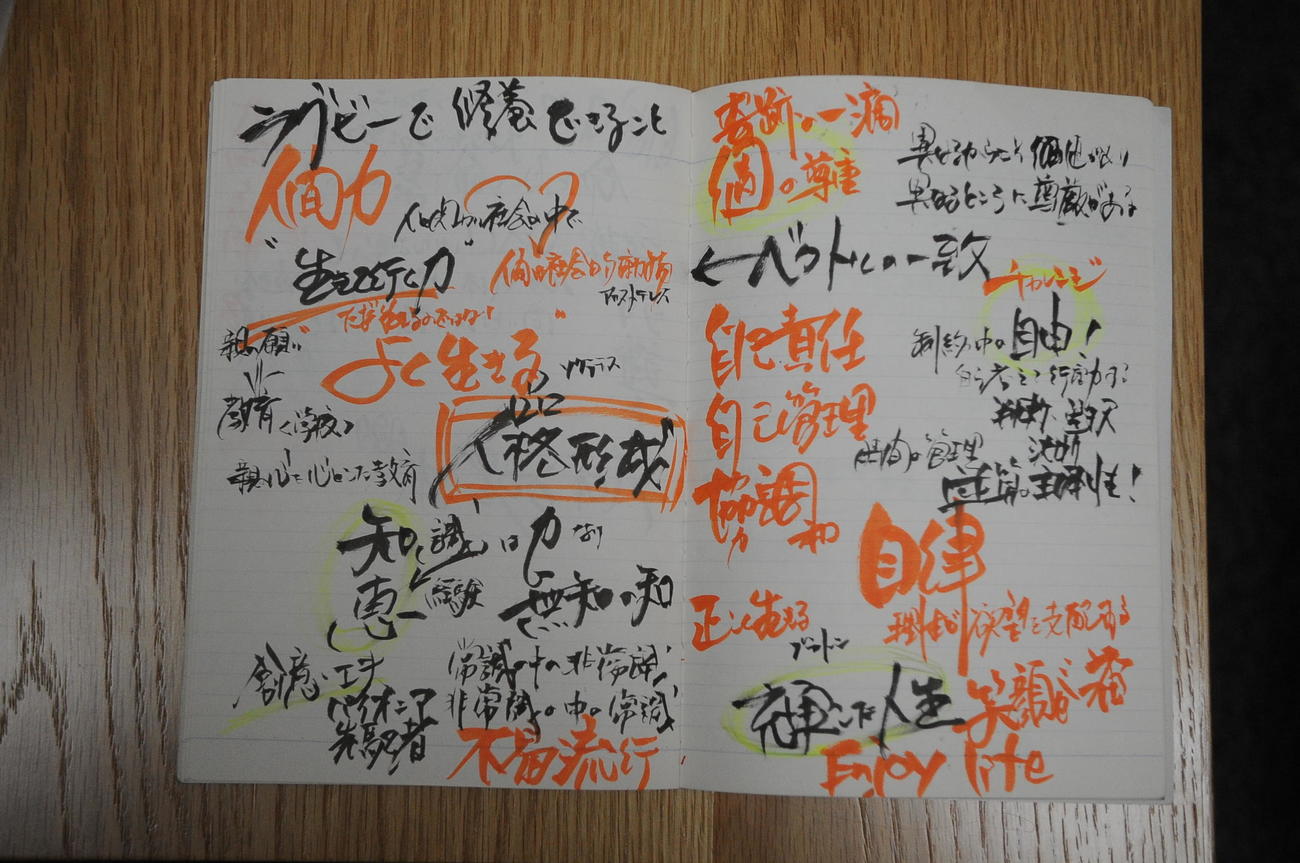 ラグビーで修養できること
人間力
人間関係 社会の中で
"生きて行く力"
人間は社会的動物
アリストテレス
ただ生きるのではない!
親の願い
よく生きる"
ソクラテス
教育〈学校〉
人格形成
親心を心とした教育
知識は力なり
知恵
経験
無知の知
創意・工夫
パイオニア
先駆者
常識の中の非常識
非常識の中の常識
不易流行
奇跡の一滴
個の尊重
異なるからこそ価値があり
異なるところに尊厳がある
←ベクトルの一致
チャレンジ
自己責任
制約の中の自由!
自ら考えて行動する
判断・選択
決断
自己管理
時間の管理
主体性!
協調
協力
調和
自律
理性が欲望を支配する
正しく生きる
プラトン
充実した人生
笑顔が
Enjoy life